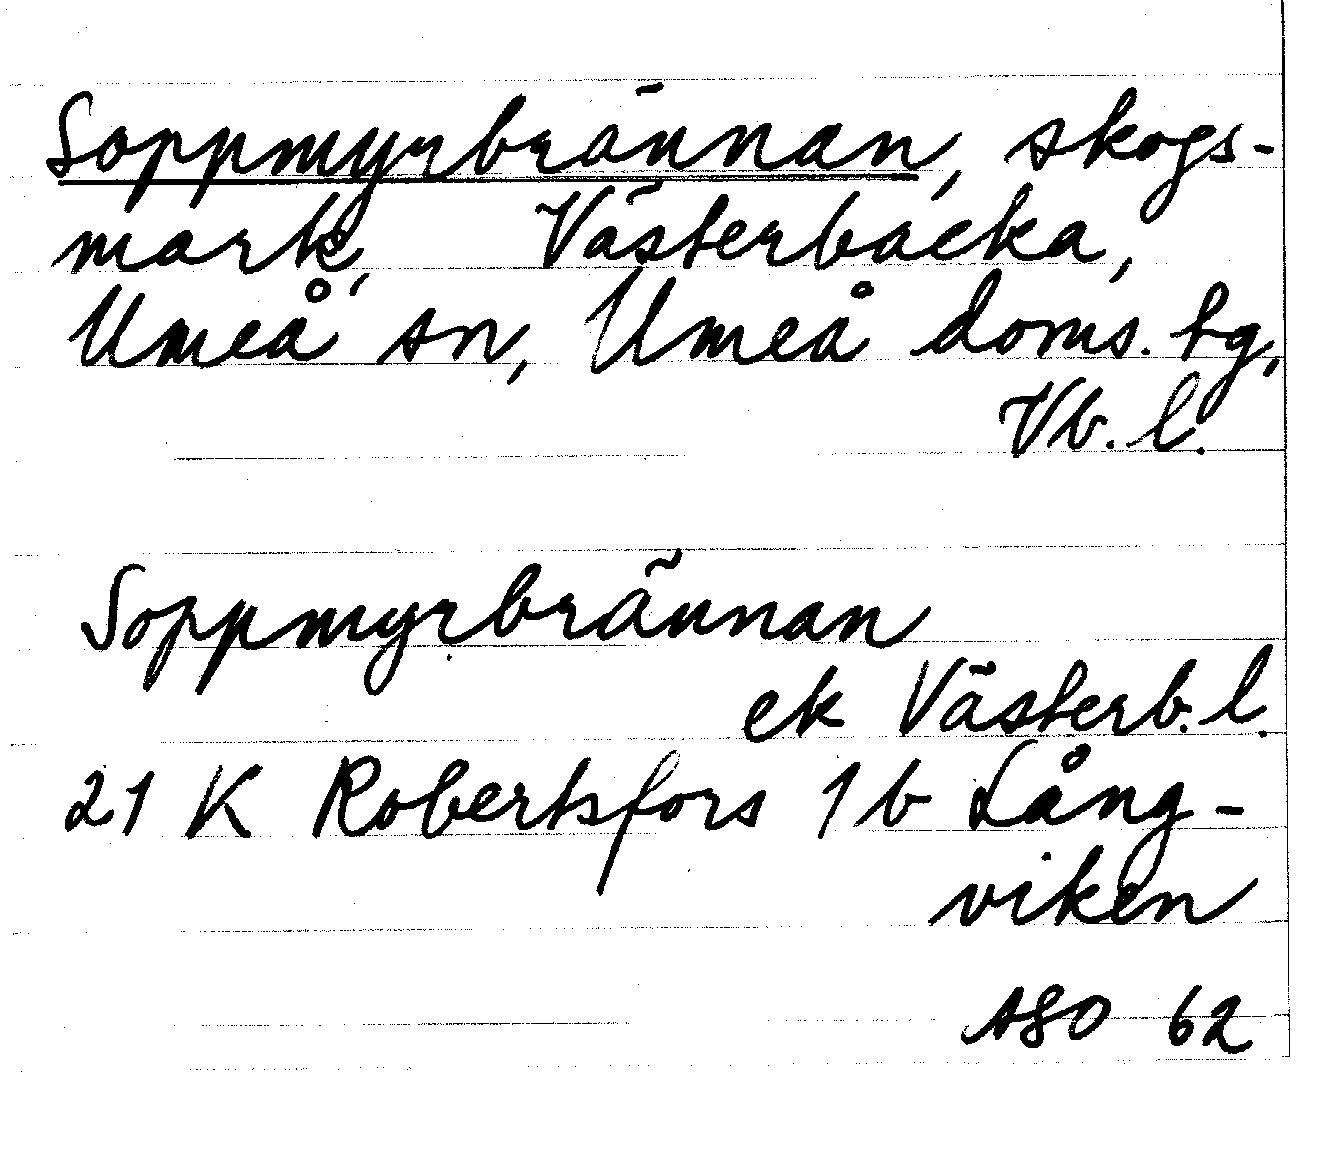 Soppmyrbrännan, skogs-
mark, Västerbacka,
Umeå sn, Umeå doms. tg,
Vb. l.
Soppmyrbrännan
ek Västerb. l.
21 K Robertsfors 1 b Lång-
viken
ASO 62